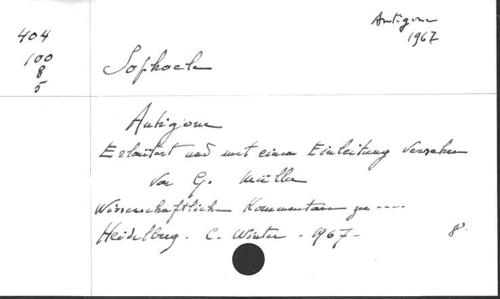 Antigone
1967
404
100
8
5
Sophocle
Antigone
Erläutert und mit einer Einleitung versehen
von G. Müller
Wissenschaftliche Kommentare zu ....
Heidelberg. C. Winter. 1967- 8°